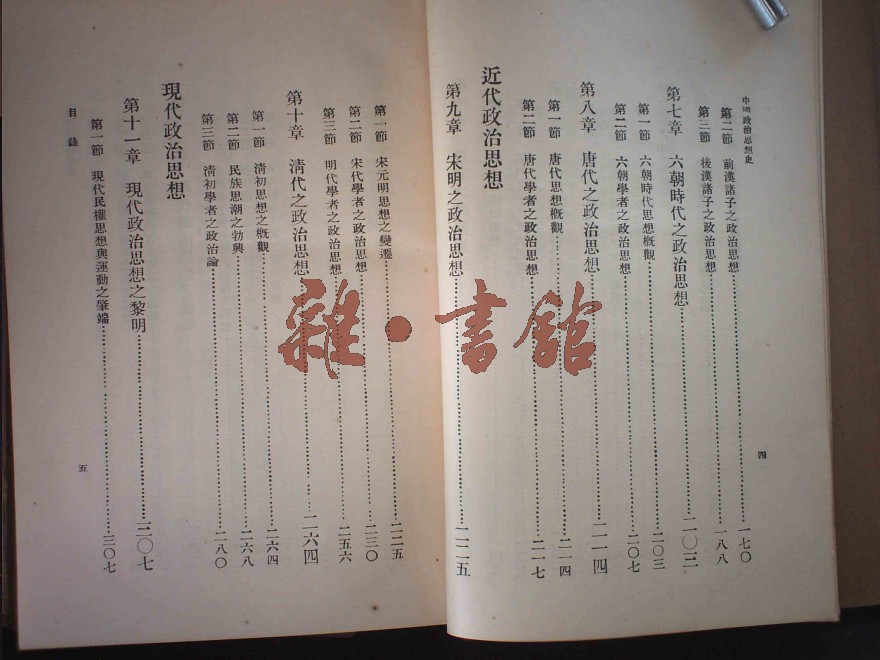 中國政治思想史
第二節 前漢諸子之政治思想…一七〇
第三節 後漢諸子之政治思想…一八八
第七章 六朝時代之政治思想…二〇三
第一節 六朝時代思想概觀…二〇三
第二節 六朝學者之政治思想…二〇七
第八章 唐代之政治思想…二一四
第一節 唐代思想概觀…二一四
第二節 唐代學者之政治思想…二一七
近代政治思想
第九章 宋明之政治思想…二二五
四
第一節 宋元明思想之變遷…二二五
第二節 宋代學者之政治思想…二三〇
第三節 明代學者之政治思想…二五六
第十章 清代之政治思想…二六四
第一節 清初思想之概觀…二六四
第二節 民族思潮之勃興…二六八
第三節 清初學者之政治論…二八〇
現代政治思想
第十一章 現代政治思想之黎明…三〇七
第一節 現代民權思想與運動之肇端…三〇七
目錄
五
雜·書館